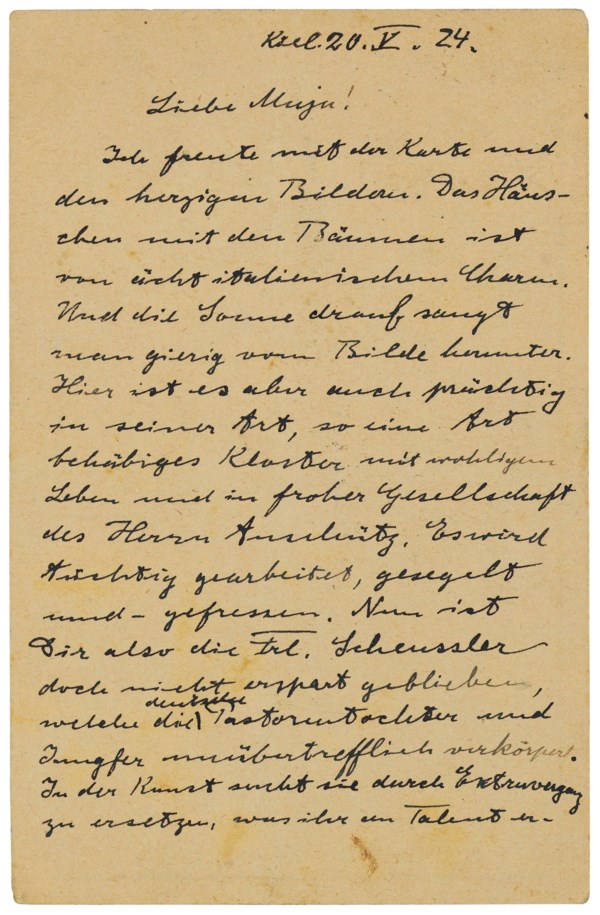 Kiel. 20. V. 24.
Liebe Maja!
Ich freute mit der Karte und
den herzigen Bildern. Das Häus-
chen mit den Bäumen ist
von ächt italienischem Charm.
Und die Sonne drauf saugt
man gierig vom Bilde herunter.
Hier ist es aber auch prächtig
in seiner Art, so eine Art
behäbiges Kloster mit wohligem
Leben und in froher Gesellschaft
des Herrn Anschütz. Es wird
tüchtig gearbeitet, gesegelt
und - gefressen. Nun ist
Dir also die Frl. Scheussler
doch nicht erspart geblieben,
welche die deutsche Pastorentochter und
Jungfer unübertrefflich verkörpert.
In der Kunst sucht sie durch
zu ersetzen, was ihr an Talent er-